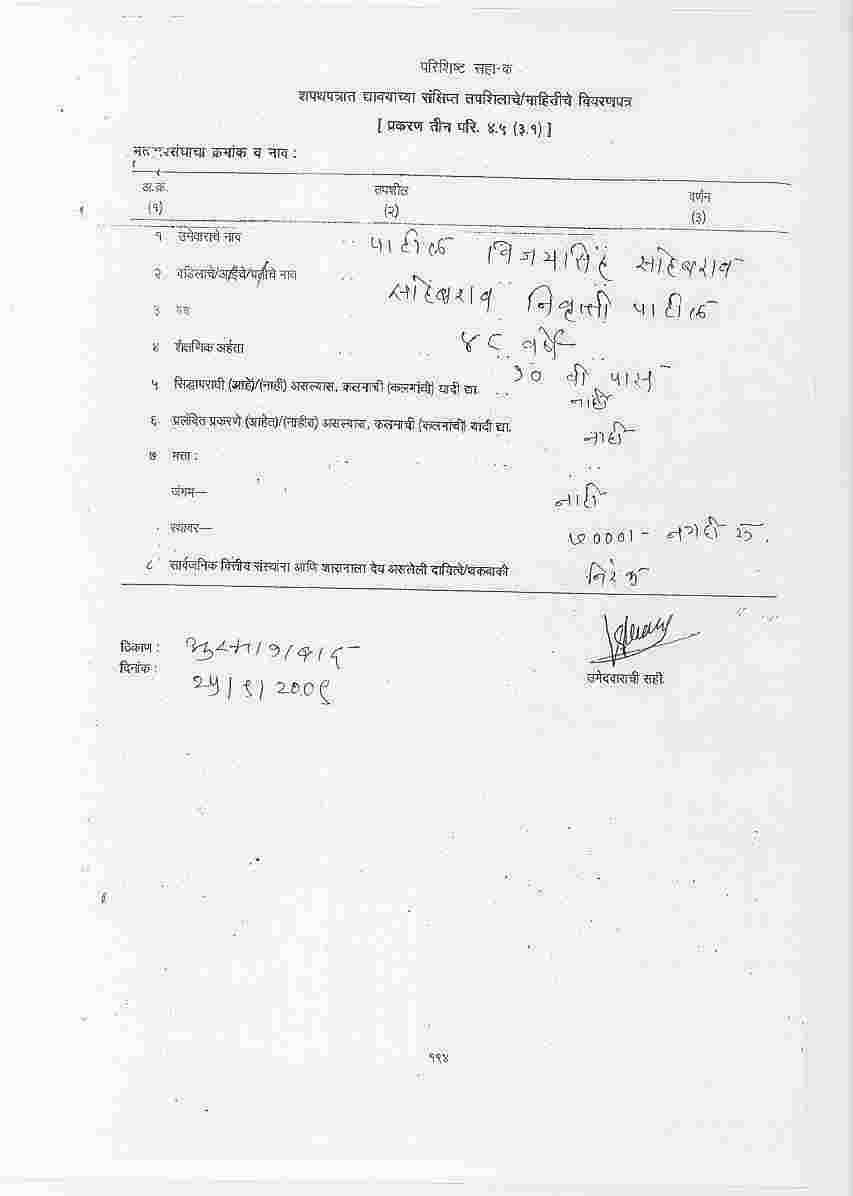 परिशिष्ट सहा-क
शपथपत्रात द्यावयाच्या संक्षिप्त तपशिलाचे/माहितीचे विवरणपत्र
[ प्रकरण तीन परि. ४.५ (३.१) ]
क्रमांक व नाव :
अ.क्र. तपशील वर्णन
(१) (२) (३)
१ उमेवाराचे नाव .. पाटील विजयसिंह साहेबराव
२ वडिलाचे/आईचे/पतीचे नाव .. साहेबराव निवृत्ती पाटील
३ वय
४ शैक्षणिक अर्हता .. .. ४८ वर्षे
१० वी पास
५ सिद्धापराधी (आहे)/(नाही) असल्यास, कलमाची (कलमांची) यादी द्या. .. नाही
६ प्रलंबित प्रकरणे (आहेत)/(नाहीत) असल्यास, कलमाची (कलमांची) यादी द्या. नाही
७ मत्ता :
जंगम— नाही
स्थावर— नगदी रु.
८ सार्वजनिक वित्तीय संस्थांना आणि शासनाला देय असलेली दायित्वे/थकबाकी निरंक
ठिकाण :
दिनांक : २५/९/२००९
उमेदवाराची सही.
११४